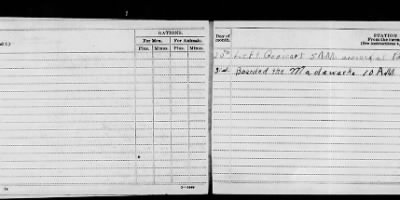 RATIONS.
For Men.
For Animals.
Plus.
Minus.
Plus.
Minus.
Day of month.
STATION
From the
(See instructions
30th Left 5 AM arrived at
31st Boarded the Madawaska 10 AM
3—1049